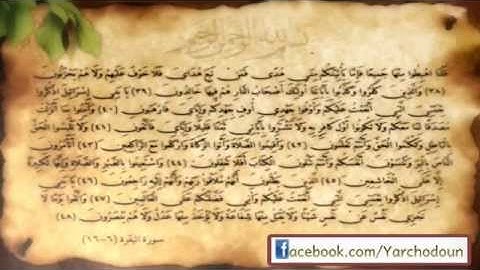 بسم الله الرحمن الرحيم
قلنا اهبطوا منها جميعا فإما يأتينكم مني هدى فمن تبع هداي فلا خوف عليهم ولا هم يحزنون
(٣٨) والذين كفروا وكذبوا بآياتنا أولئك أصحاب النار هم فيها خالدون (٣٩) يا بني إسرائيل اذكروا
نعمتي التي أنعمت عليكم وأوفوا بعهدي أوف بعهدكم وإياي فارهبون (٤٠) وآمنوا بما أنزلت
مصدقا لما معكم ولا تكونوا أول كافر به ولا تشتروا بآياتي ثمنا قليلا وإياي فاتقون (٤١) ولا تلبسوا الحق
بالباطل وتكتموا الحق وأنتم تعلمون (٤٢) وأقيموا الصلاة وآتوا الزكاة واركعوا مع الراكعين (٤٣) أتأمرون
الناس بالبر وتنسون أنفسكم وأنتم تتلون الكتاب أفلا تعقلون (٤٤) واستعينوا بالصبر والصلاة وإنها لكبيرة
إلا على الخاشعين (٤٥) الذين يظنون أنهم ملاقوا ربهم وأنهم إليه راجعون (٤٦) يا بني
إسرائيل اذكروا نعمتي التي أنعمت عليكم وأني فضلتكم على العالمين (٤٧) واتقوا يوما لا
تجزي نفس عن نفس شيئا ولا يقبل منها شفاعة ولا يؤخذ منها عدل ولا هم ينصرون (٤٨)
سورة البقرة
facebook.com/Yarchodoun